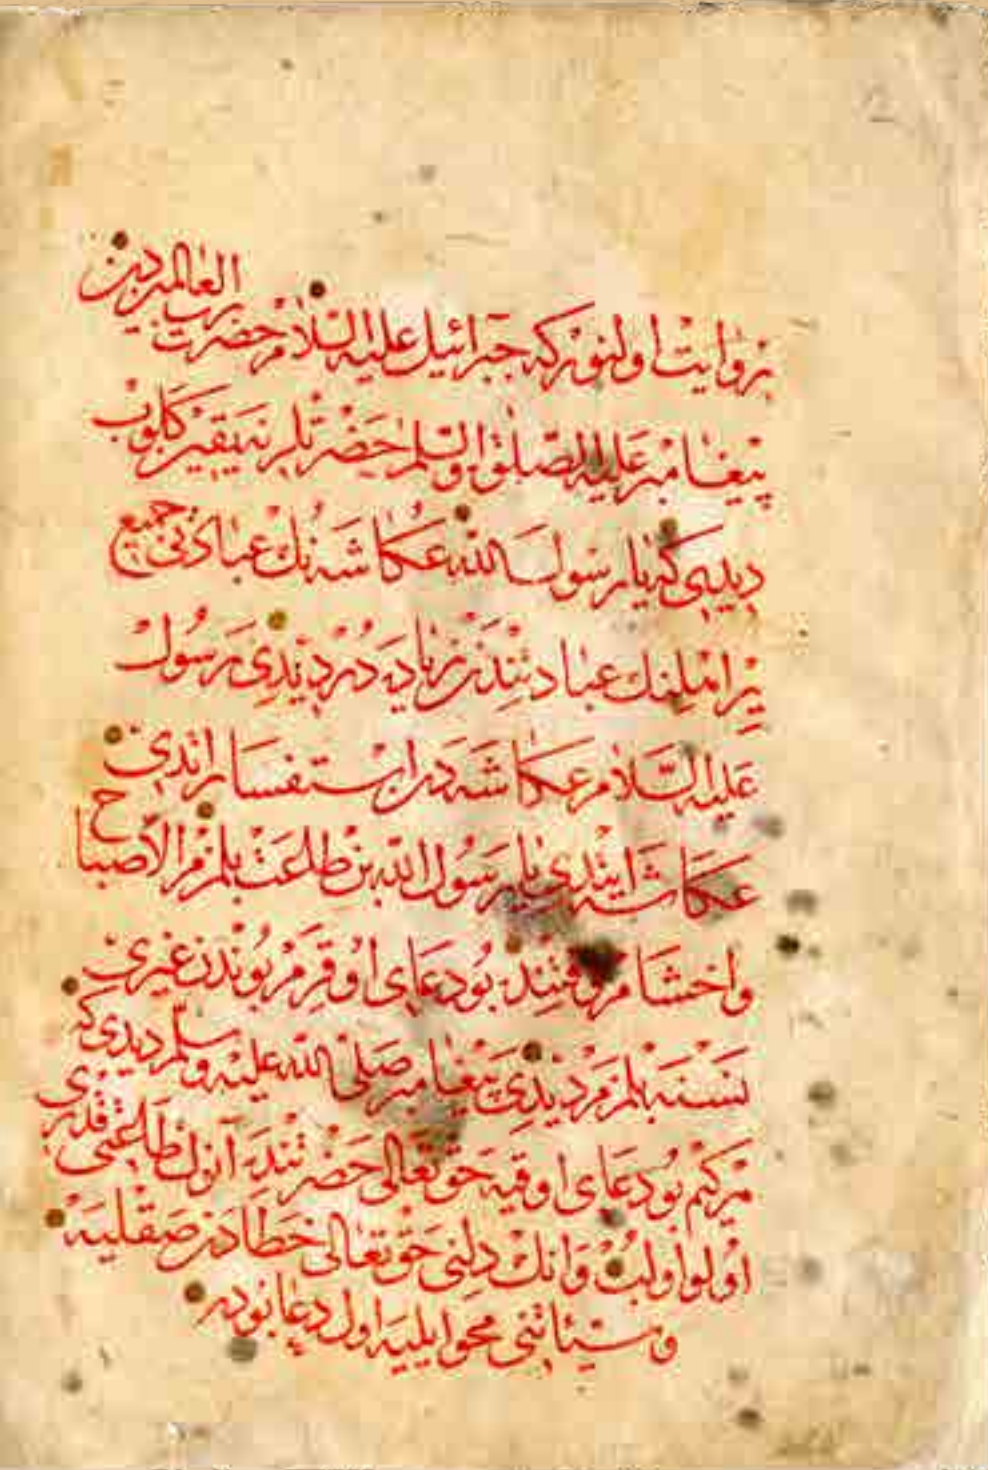 روايت اولنوركه جبرائيل عليه السلام حضرت رب العالميندن
پيغامبر عليه الصلوة والسلم حضرتلرينه كلوب
ديدى كه يا رسول الله عكاشه نك عبادتى جميع
عبادتندن زياده در ديدى رسول
عليه السلام عكاشه دن استفسار اتدى
عكاشه ايتدى يا رسول الله بن طاعت بلمزم الا صباح
واخشام وقتنده بو دعاى اوقرم بوندن غيرى
نسنه بلمزم ديدى پيغامبر صلى الله عليه وسلم ديدى كه
هر كيم بو دعاى اوقيه حق تعالى حضرتنده آنوك طاعتى قدرى
اولو اولب وانك دلنى حق تعالى خطادن صقليه
وسيئاتنى محو ايليه اول دعا بودر